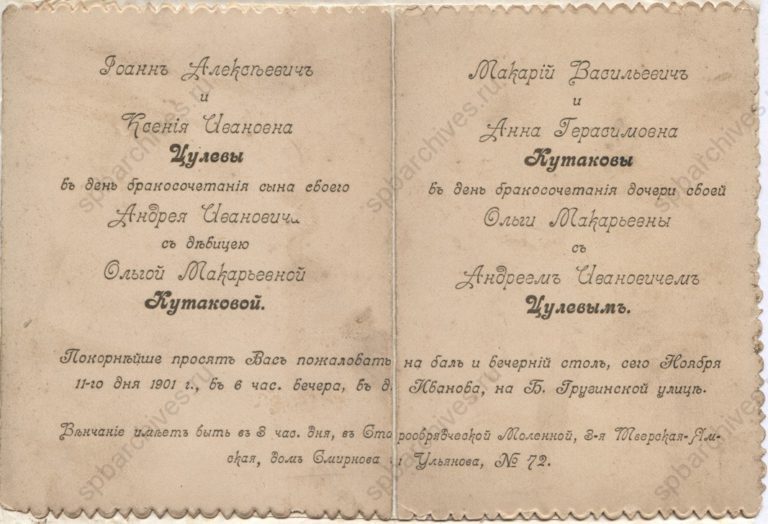 Іоаннъ Алексѣевичъ
и
Ксенія Ивановна
Цулевы
въ день бракосочетанія сына своего
Андрея Ивановича
съ дѣвицею
Ольгой Макарьевной
Кутаковой.
Макарій Васильевичъ
и
Анна Герасимовна
Кутаковы
въ день бракосочетанія дочери своей
Ольги Макарьевны
съ
Андреемъ Ивановичемъ
Цулевымъ.
Покорнѣйше просятъ Васъ пожаловать на балъ и вечерній столъ, сего Ноября
11-го дня 1901 г., въ 6 час. вечера, въ д. Иванова, на Б. Грузинской улицѣ.
Вѣнчаніе имѣетъ быть въ 3 час. дня, въ Старообрядческой Моленной, 3-я Тверская-Ям-
ская, домъ Смирнова Ульянова, № 72.
spbarchives.ru